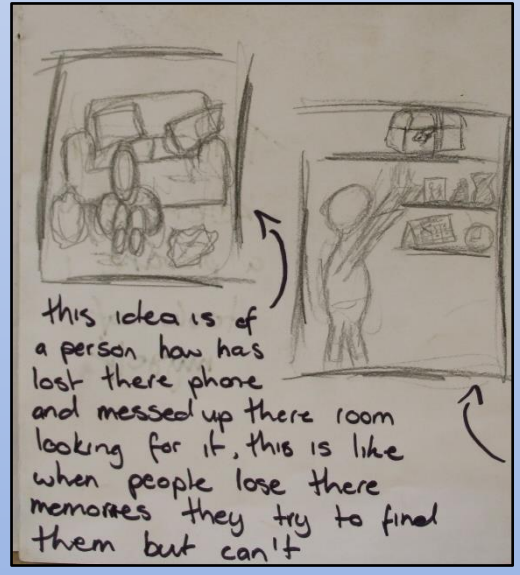 this idea is of
a person how has
lost there phone
and messed up there room
looking for it, this is like
when people lose there
memories they try to find
them but can't